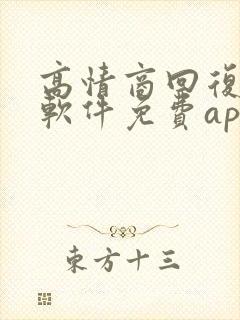 高情商回復
軟件免費ap
東方十三